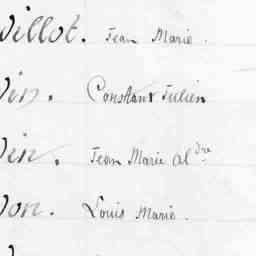 Villot. Jean Marie.
Vin. Constant Julien
Vin. Jean Marie al.dre
Von. Louis Marie.